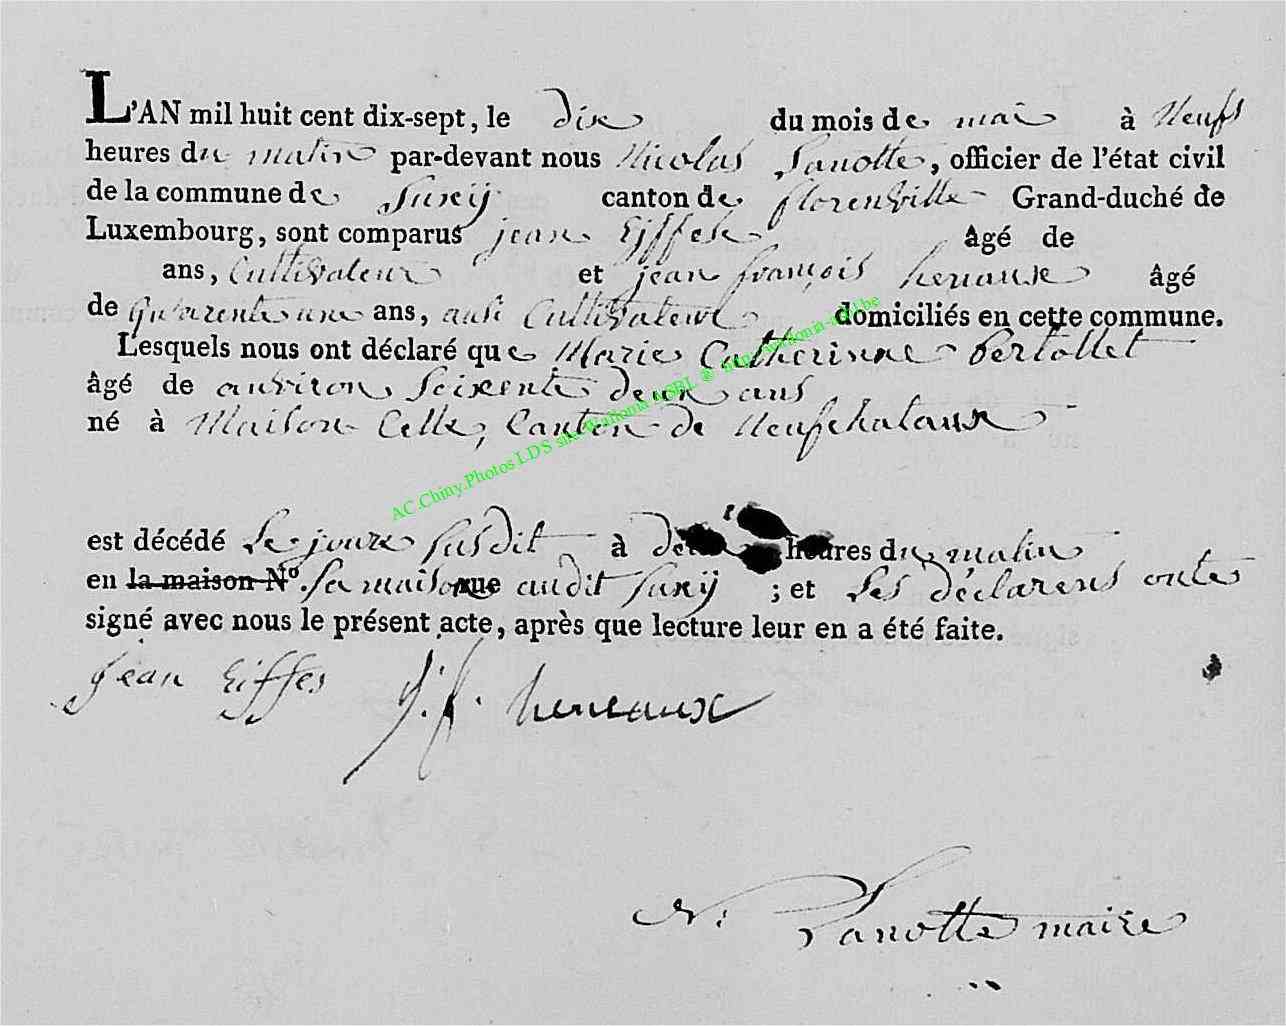 L'AN mil huit cent dix-sept, le dix du mois de mai à Neufs
heures du matin par-devant nous Nicolas Lanotte, officier de l'état civil
de la commune de Suxÿ canton de florenville Grand-duché de
Luxembourg, sont comparus jean Eiffes âgé de
ans, Cultivateur et jean françois henaux âgé
de quarente une ans, ausi Cultivateur domiciliés en cette commune.
Lesquels nous ont déclaré que Marie Catherinne Pertollet
âgé de anviron Seixente deux ans
né à Maison Celle, Canton de Neufchataux
AC.Chiny.Photos LDS site Wallonia ASBL ®
est décédé Le jour Susdit à heures du matin
en la maison N°. Sa maison rue audit Suxÿ ; et Les déclarens onte
signé avec nous le présent acte, après que lecture leur en a été faite.
jean Eiffes j. f. heneaux
N: Lanotte maire